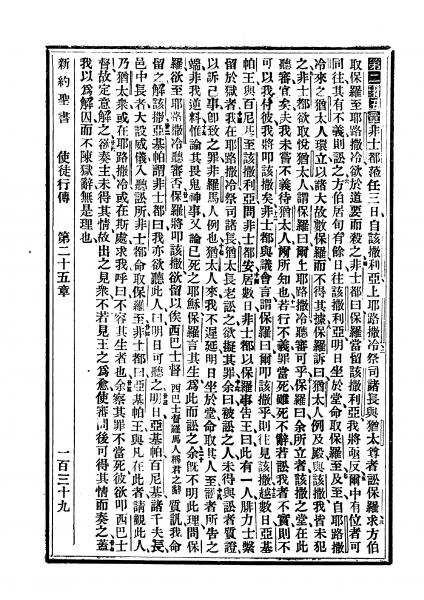 第二十五章非士都蒞任三日自該撒利亞上耶路撒冷祭司諸長與猶太尊者訟保羅求方伯
取保羅至耶路撒冷欲於道要而殺之非士都曰保羅當留該撒利亞我將亟反爾中有位者可
同往其有不義則訟之方伯居旬有餘日往該撒利亞明日坐於堂命取保羅至及至自耶路撒
冷來之猶太人環立以諸大故數保羅而不得其據保羅訴曰猶太人例及殿與該撒我皆未犯
之非士都欲取悅猶太人謂保羅曰爾上耶路撒冷聽審可乎保羅曰余所立者該撒之堂在此
聽審宜矣夫我未嘗不義待猶太人爾所知也若行不義罪當死雖死不辭若訟我者不實則不
可以我付彼我將叩該撒矣非士都與議會言謂保羅曰爾叩該撒乎則往見該撒越數日亞基
帕王與百尼基至該撒利亞問非士都安居數日非士都以保羅事告王曰此有一人腓力士繫
留於獄者我在耶路撒冷祭司諸長猶太長老訟之欲擬其罪余曰被訟之人未得與訟者質證
以訴己事卽致之罪非羅馬人例也猶太人來我不遲延明日坐於堂命取其人至訟者所告之
端非我逆料惟論其畏鬼神事又論已死之耶穌保羅言其生爲此而訟之余旣不明此理問保
羅欲至耶路撒冷聽審否保羅將叩該撒欲留以俟西巴士督 西巴士督羅馬人稱君之辭 質訊我命
留之解該撒亞基帕謂非士都曰我亦欲聽此人曰明日可聽之明日亞基帕百尼基諸千夫長
邑中長者大設威儀入聽訟所非士都命取保羅至非士都曰亞基帕王與凡在此者請觀此人
乃猶太衆或在耶路撒冷或在斯處求我呼曰不容其生者也余察其罪不當死彼欲叩西巴士
督故定意解之欲奏主未得其情故出之見衆不若見王之爲愈使審問後可得其情而奏之蓋
我以爲解囚而不陳獄辭無是理也
新約聖書 使徒行傳 第二十五章 一百三十九